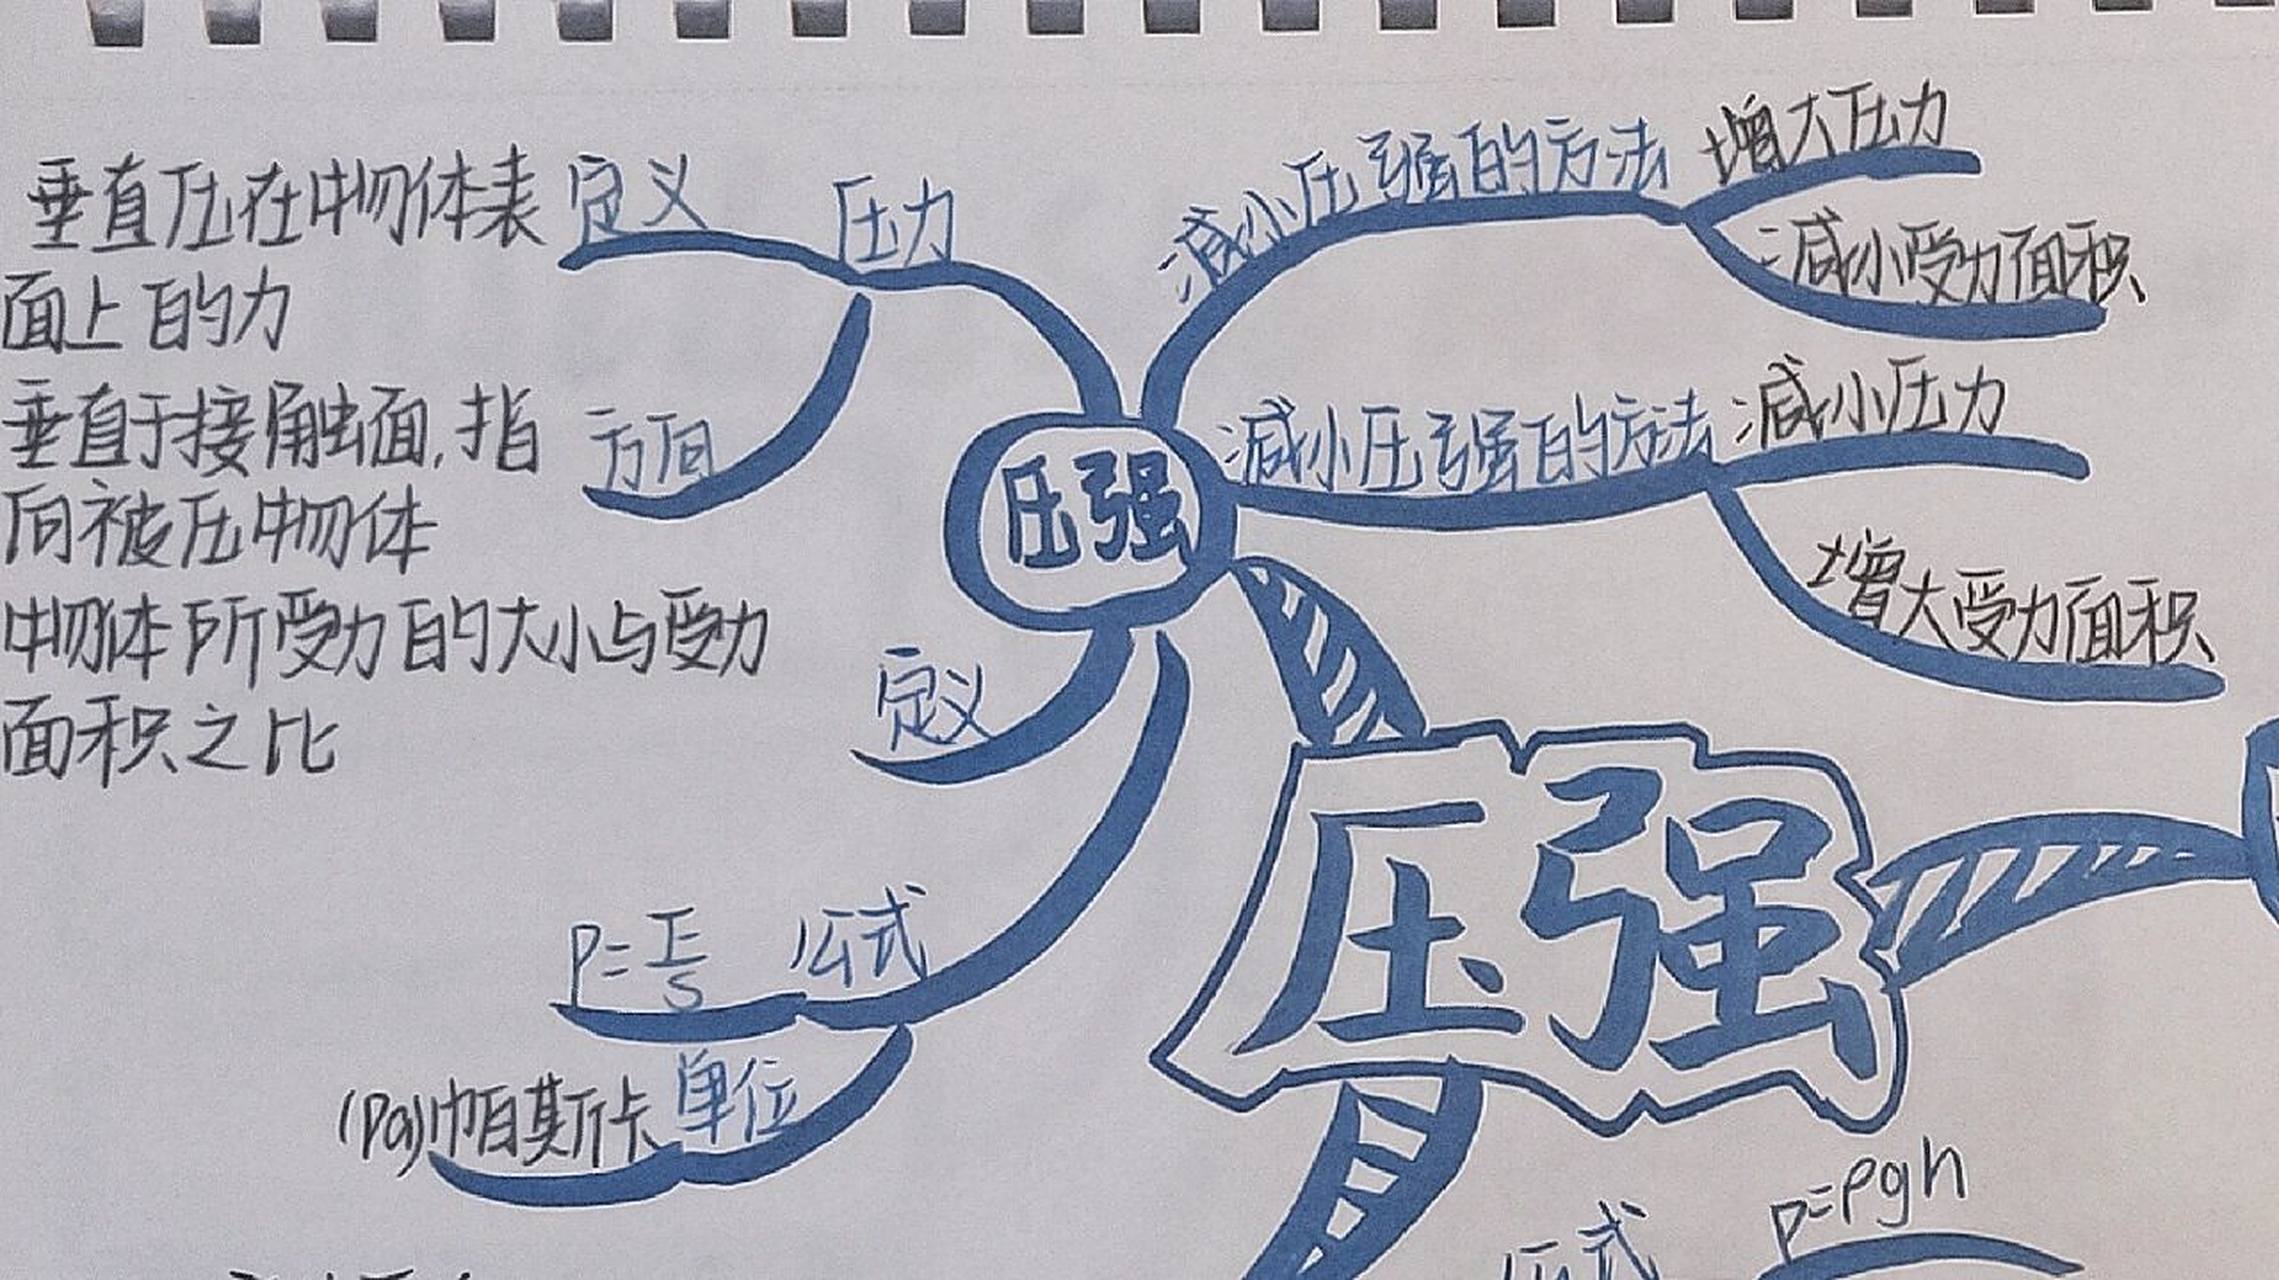 垂直压在物体表
面上的力
定义
压力
垂直于接触面,指
向被压物体
方向
物体所受力的大小与受力
面积之比
定义
P=F/S
公式
(Pa)帕斯卡
单位
压强
减小压强的方法
增大压力
减小受力面积
减小压强的方法
减小压力
增大受力面积
压强
公式
P=ρgh